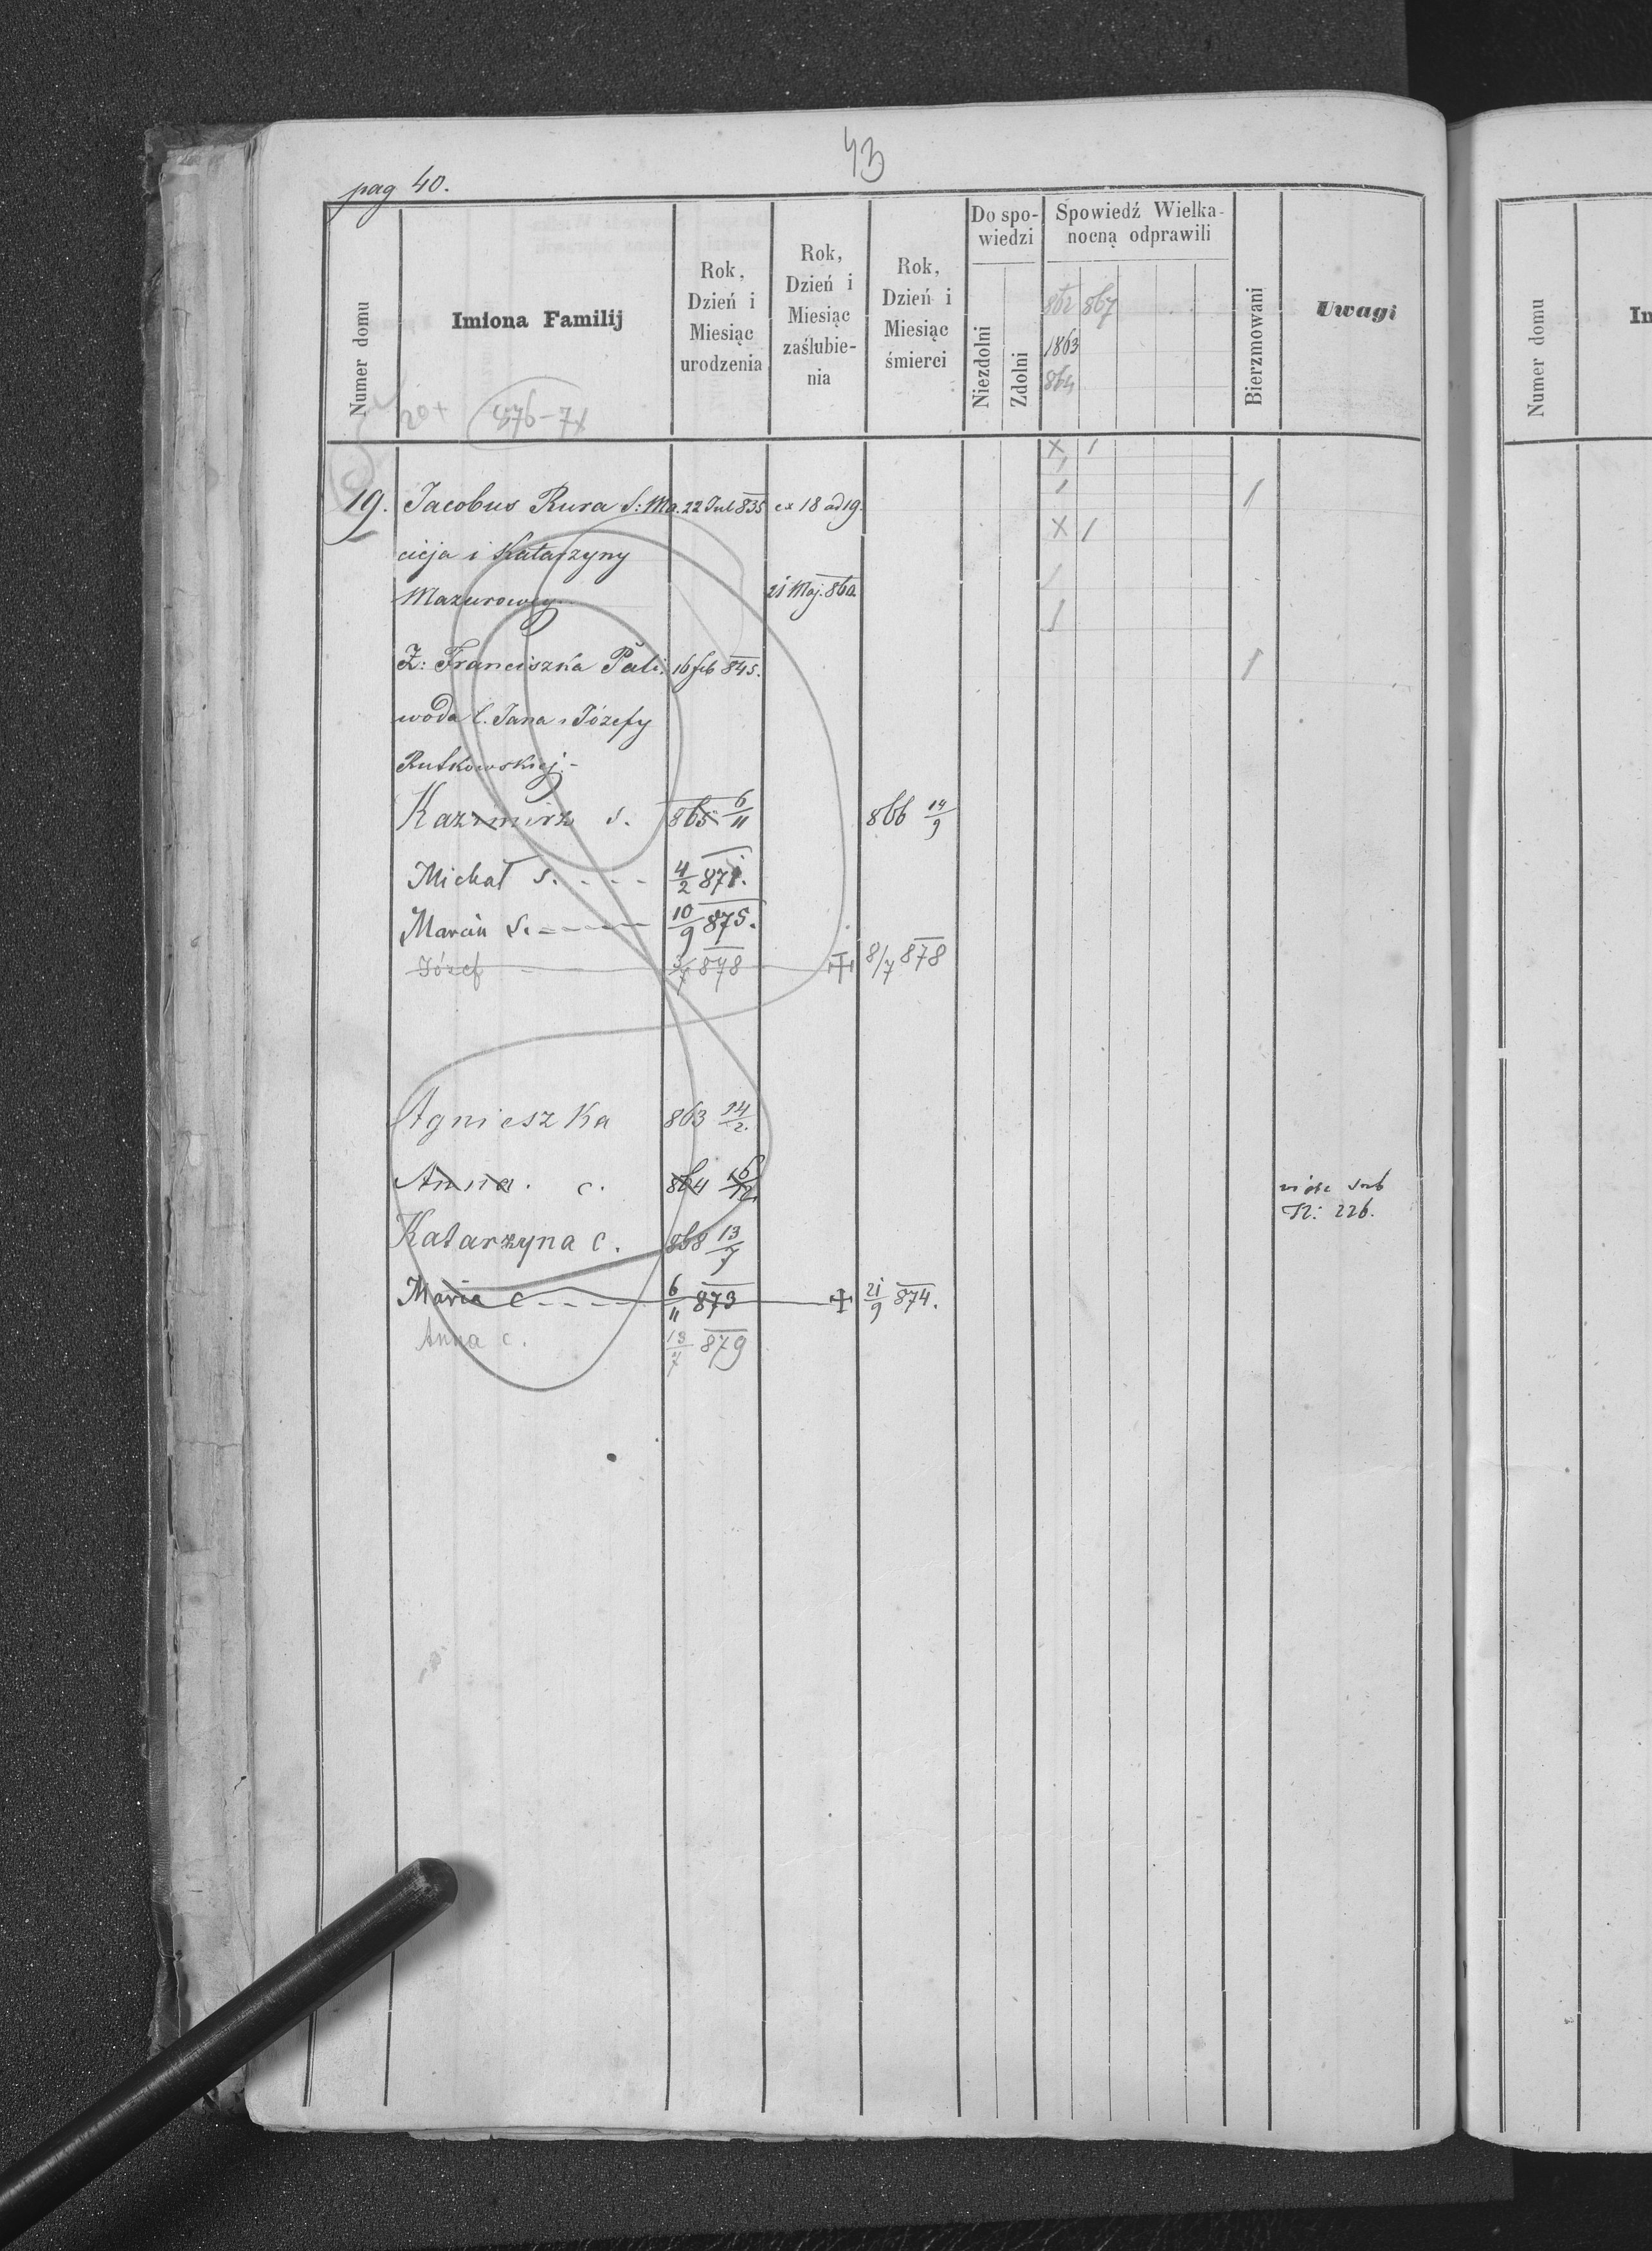 43
pag 40.
Numer domu
Imiona Familij
Rok, Dzień i Miesiąc urodzenia
Rok, Dzień i Miesiąc zaślubie- nia
Rok, Dzień i Miesiąc śmierci
Do spo- wiedzi
Niezdolni
Zdolni
Spowiedź Wielka- nocną odprawili
862 867
1863
864
Bierzmowani
Uwagi
Numer domu
19. Jacobus Rura S: Ma. 22 Jul 835 ex 18 ad 19.
cieja i Katarzyny
Mazurowey 21 Maj. 860
Ż: Franciszka Pali. 16 feb 845.
woda C. Jana i Józefy
Rutkowskiej.-
Kazimirz s. 865 6/11 866 14/9
Michał s. - - - 4/2 871.
Marcin s. - - - - 10/9 875.
Józef 3/7 878 + 8/7 878
Agnieszka 863 14/2
Anna. c. 864 16/12 vide sub
N: 226.
Katarzyna c. 868 13/7
Maria c - - - - 6/11 873 + 21/9 874.
Anna c. 13/7 879